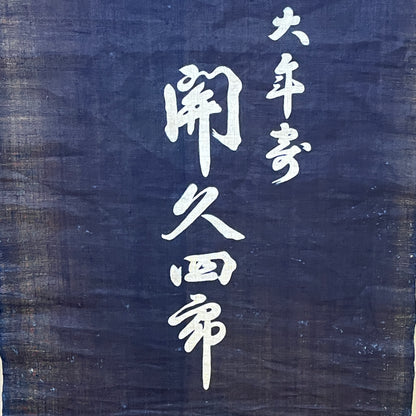 大年寄
開久四郎